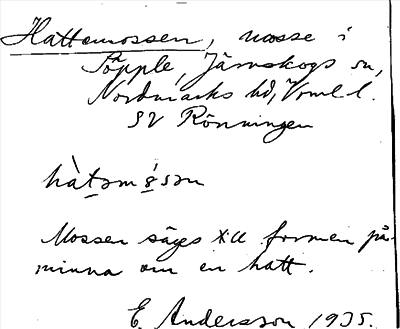 Hattemossen, mosse i
Töpple, Järnskogs sn,
Nordmarks hd, Värml. l.
SV Rönningen
hàtəmɷ́sən
Mossen säges till formen på-
minna om en hatt.
E. Andersson 1935.